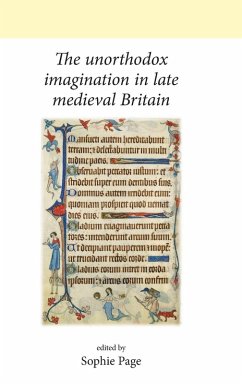 The unorthodox
imagination in late
medieval Britain
Mansueti autem hereditabunt
terram: & delectabuntur in multi
tudine pacis.
Obseruabit peccator iustum: et
stridebit super eum dentibus suis.
Dominus autem irridebit eum:
quoniam prospicit quod ueniat
dies eius.
Gladium euaginauerunt pecca
tores: intenderunt arcum suum.
Ut decipiant pauperem & inopem:
ut trucident rectos corde.
Gladius eorum intret in corda
ipsorum: & arcus eorum confrin
edited by
Sophie Page